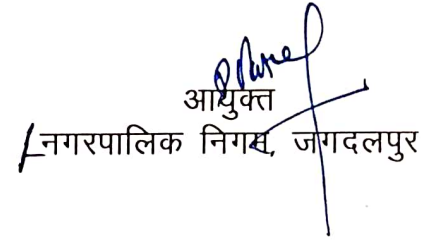 आयुक्त
नगरपालिक निगम, जगदलपुर